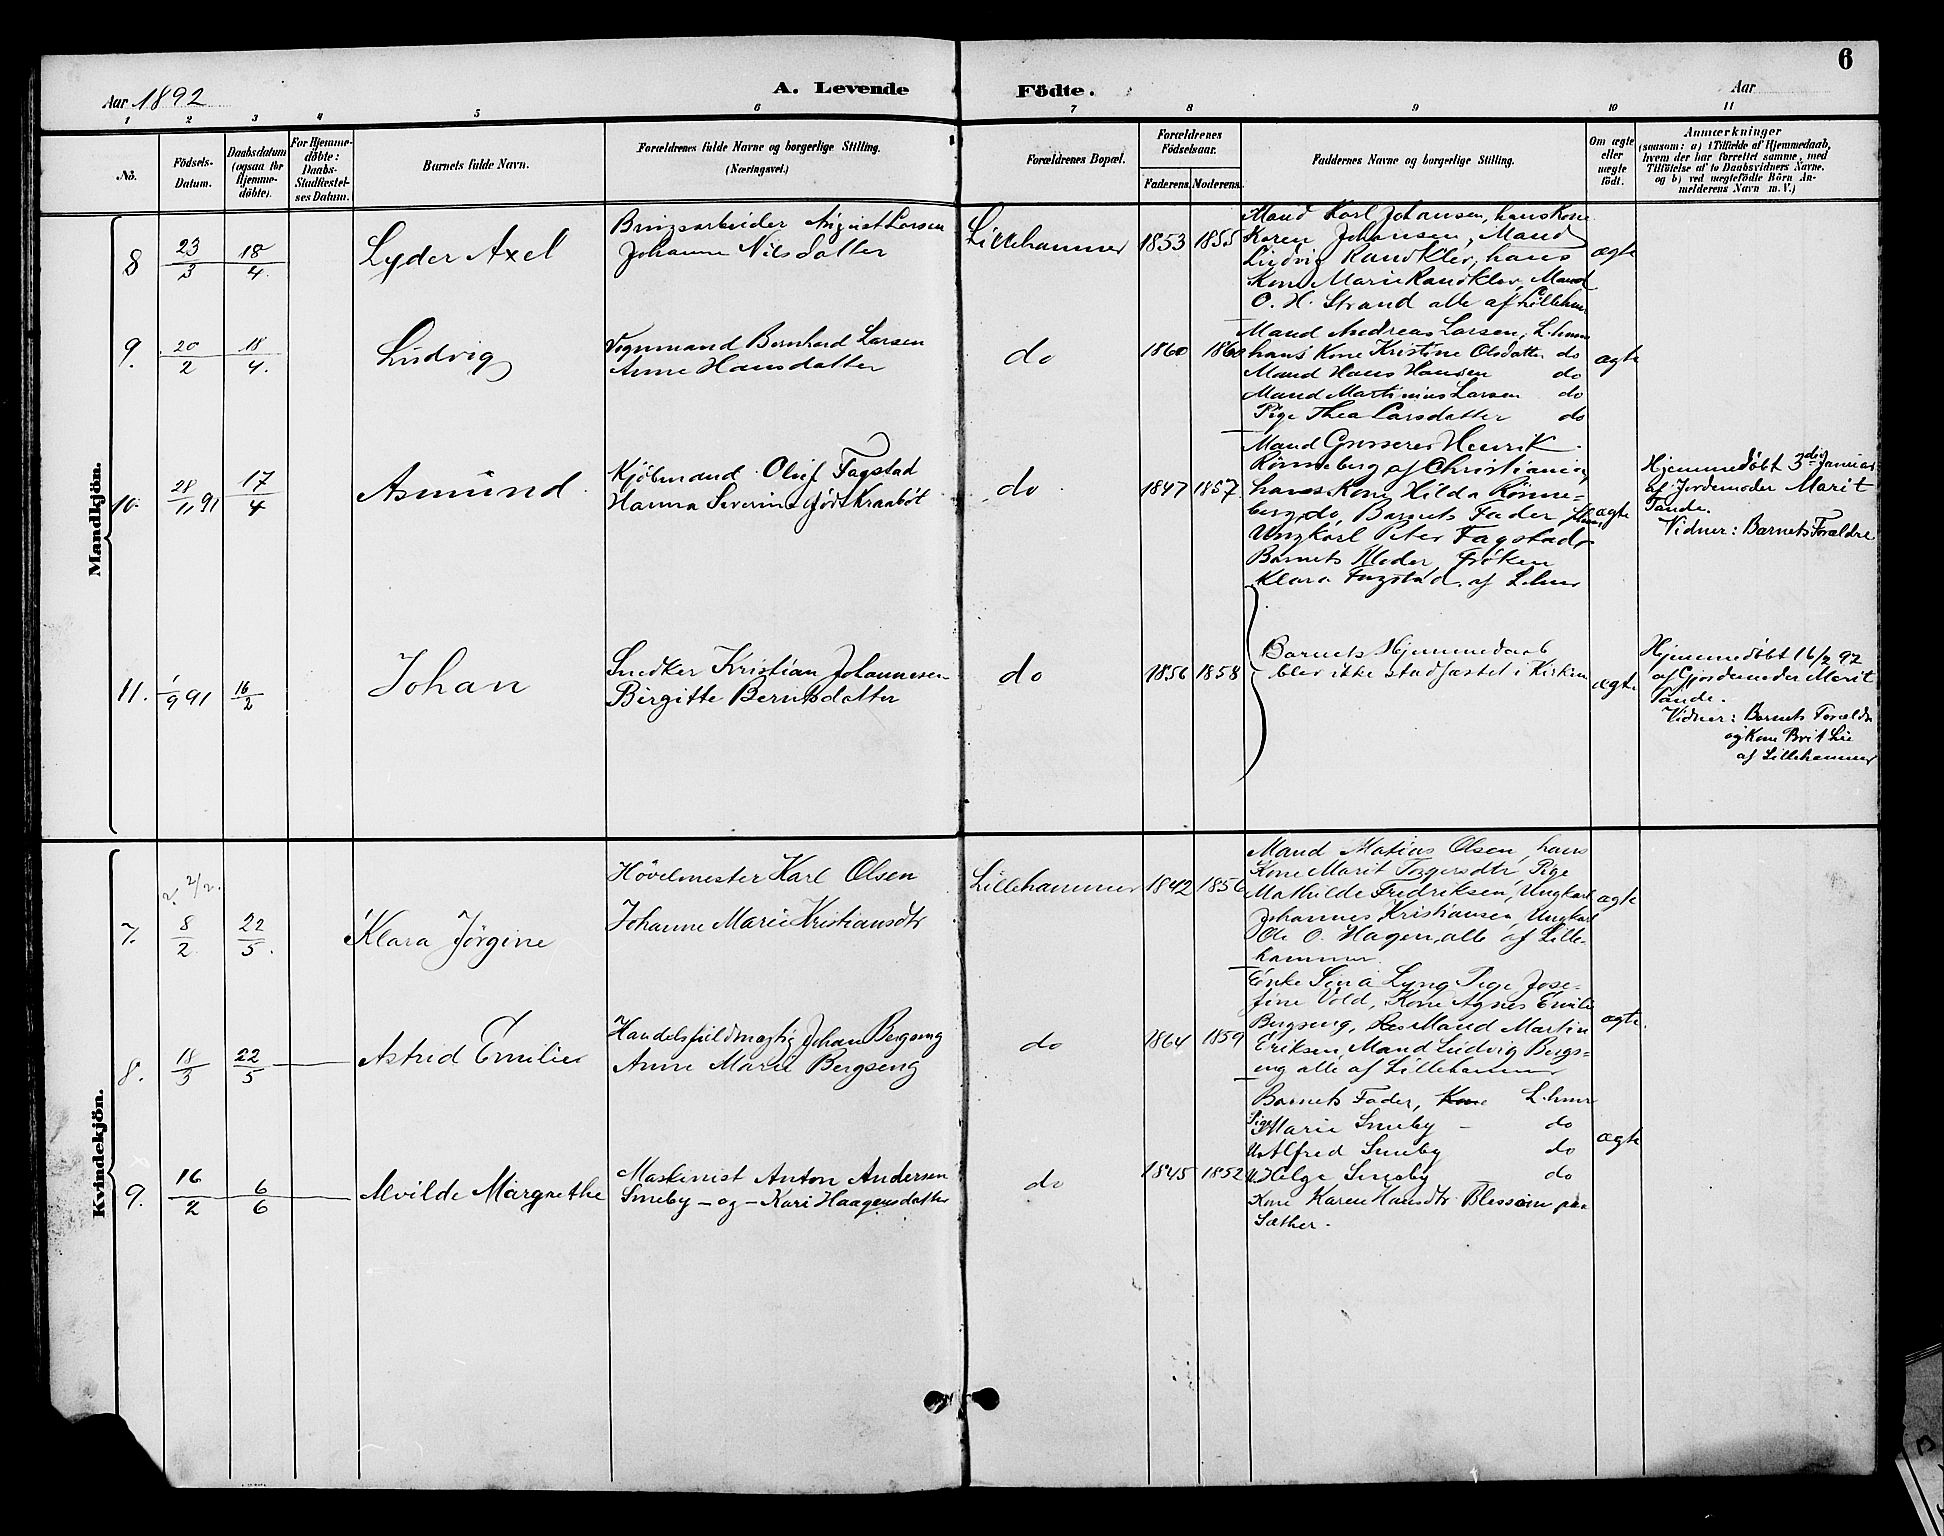 6
Aar 1892
A. Levende Födte.
Aar
1 2 3 4 5 6 7 8 9 10 11
No.
Födsels-Datum.
Daabsdatum (ogsaa for Hjemme-döbte).
For Hjemme-döbte: Daabs-Stadfæstel-ses Datum.
Barnets fulde Navn.
Forældrenes fulde Navne og borgerlige Stilling.
(Næringsvei.)
Forældrenes Bopæl.
Forældrenes Födselsaar.
Faderens. Moderens.
Faddernes Navne og borgerlige Stilling.
Om ægte eller uægte födt.
Anmærkninger
(saasom: a) i Tilfælde af Hjemmedaab,
hvem der har forrettet samme, med
Tilföielse af to Daabsvidners Navne.
og b) ved uægtefödte Börn An-
melderens Navn m. V.)
Mandkjön.
8 23/3 18/4. Lyder Axel
August Larsen
Johanne Nilsdatter
Lillehammer 1853 1855
Mand Karl Johansen, hans Kone
Karen Johansen, Mand
Ludvig Randklev, hans
Kone Marie Randklev, Mand
O. H. Strand alle af Lilleham
ægte
9. 20/2 18/4. Ludvig
Vognmand Bernhard Larsen
Anne Hansdatter
do 1860 1860
Mand Andreas Larsen, L.hmr
hans Kone Kristine Olsdatter do
Mand Hans Hansen do
Mand Martinius Larsen do
Pige Thea Larsdatter do
ægte
10. 28/11 91 17/4 Asmund
Kjöbmand Oluf Fagstad
Hanna Severine født Kraaböl
do 1847 1857
Mand Grosserer Henrik
Rönneberg af Christiania,
hans Kone Hilda Rönne-
berg do, Barnets Fader
Ungkarl Peter Fagstad
Barnets Moder, Fröken
Klara Fagstad, af L.hmr
ægte
Hjemmedöbt 3die Januar
af Jordemoder Marit
Tande.
Vidner: Barnets Forældre
11. 1/9 91 16/2 Johan
Snedker Kristian Johannesen
Birgitte Berntsdatter
do 1856 1858
Barnets Hjemmedaab
blev ikke stadfæstet i Kirken
ægte
Hjemmedöbt 16/2 92
af Gjordemoder Marit
Tande.
Vidner: Barnets Forældre
og Kone Brit Lie
af Lillehammer
Kvindekjön.
7. 8/2 22/5. Klara Jörgine
Hövelmester Karl Olsen
Johanne Marie Kristiansdtr
Lillehammer 1842 1856
Mand Matias Olsen, hans
Kone Marit Torgersdtr Pige
Mathilde Fredriksen, Ungkarl
Johannes Kristiansen, Ungkarl
Ole O. Hagen, alle af Lille-
hammer.
ægte
8. 18/3 22/5 Astrid Emilie
Handelsfuldmægtig Johan Bergseng
Anne Marie Bergseng
do 1864 1859
Enke Lyng Pige Jose-
fine Vold, Kone Agnes Emilie
Bergseng, Mand Martin
Eriksen, Mand Ludvig Bergs-
eng alle af Lillehammer
ægte.
9. 16/2 6/6 Alvilde Margrethe
Maskinist Anton Andersen
Smeby - og - Kari Haagensdatter
do 1845 1852
Barnets Fader, Kone L.hmr
Pige Marie Smeby - do
U. Alfred Smeby do
U. Helge Smeby do
Kone Karen Hansdtr Blessom paa
Sæther.
ægte